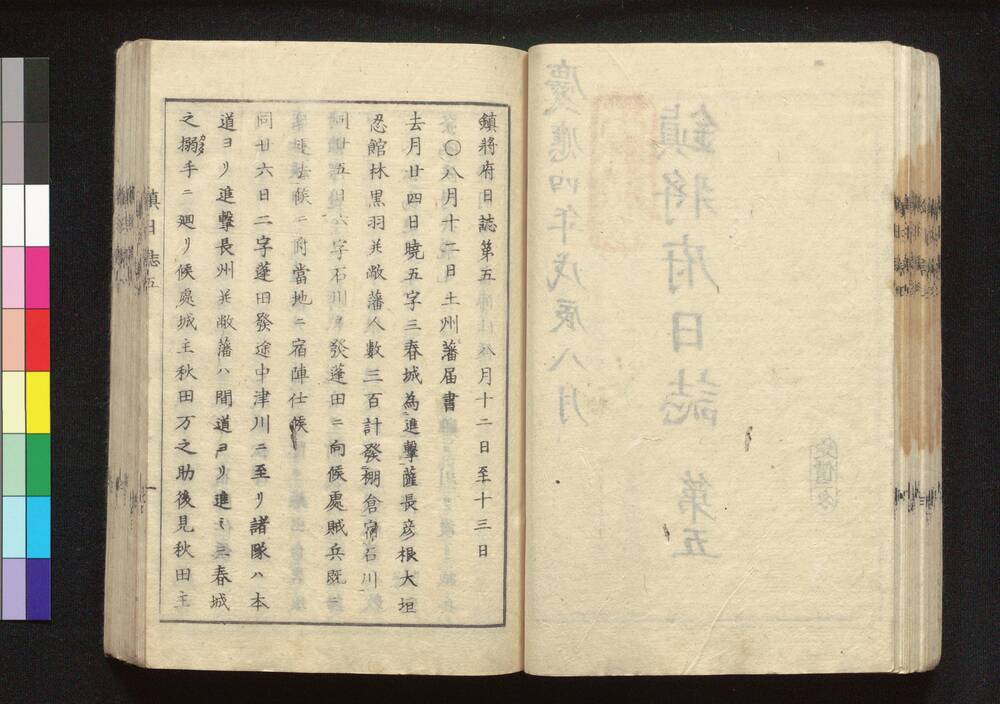 鎮將府日誌第五　八月十二日至十三日
〇八月十二日土州藩届書
去月廿四日曉五字三春城為進擊薩長彦根大垣
忍館林黒羽并敝藩人數三百計發棚倉宿石川
同廿五日六字石川ヲ發蓬田ニ向候處賊兵既ニ
逃去候ニ付當地ニ宿陣仕候
同廿六日二字蓬田發途中津川ニ至リ諸隊ハ本
道ヨリ進擊長州并敝藩ハ間道ヨリ進ミ三春城
之搦手ニ廻リ候處城主秋田万之助後見秋田主
鎮日誌五
一
慶應四年戊辰八月
鎮將府日誌 第五